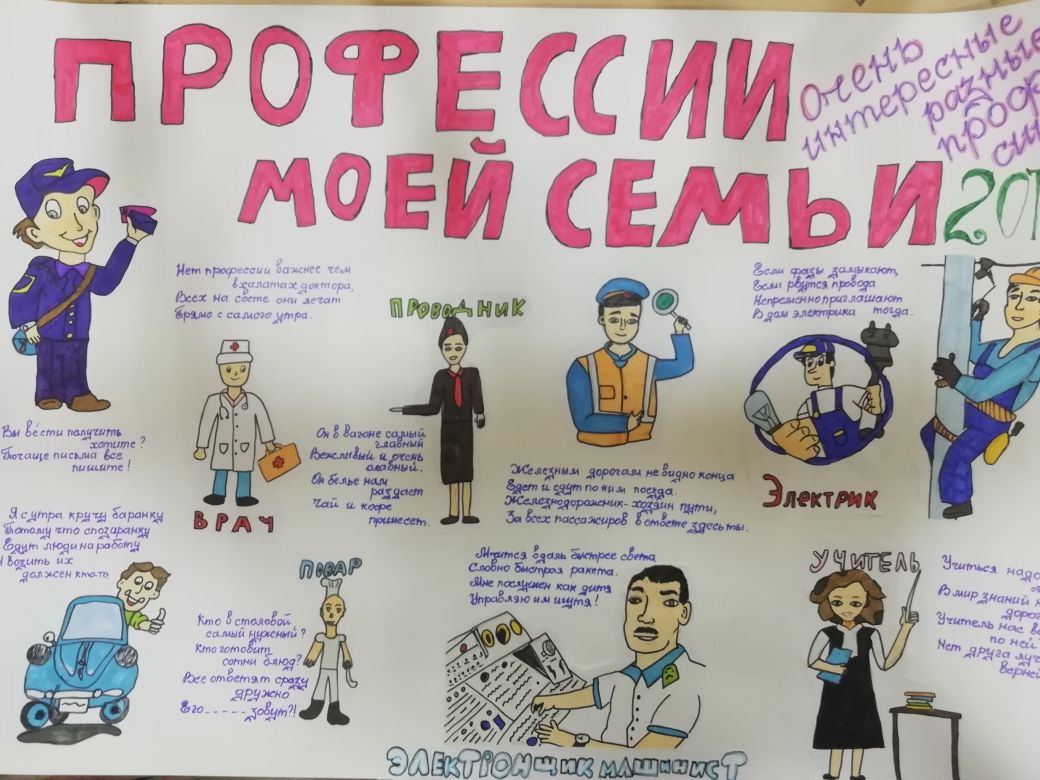 ПРОФЕССИИ
МОЕЙ СЕМЬИ
Очень
интересные
разные
проф
сии
201
Нет профессии важнее чем
в халатах доктора,
Всех на свете они лечат
Прямо с самого утра.
ПРОВОДНИК
Если фазы замыкают,
Если рвутся провода
Непременно приглашают
В дом электрика тогда.
Вы вести получить
хотите?
Почаще письма все
пишите!
ВРАЧ
Он в вагоне самый
главный
Вежливый и очень
славный.
Он белье нам
раздаст
Чай и кофе
принесет.
Железным дорогам не видно конца
Едет и едут по ним поезда.
Железнодорожник-хозяин пути,
За всех пассажиров в ответе здесь ты.
Электрик
Я с утра кручу баранку
Потому что спозаранку
Едут люди на работу
И возить их
должен кто-то.
ПОВАР
Кто в столовой
самый нужный?
Кто готовит
сотни блюд?
Все ответят сразу
дружно
Его-----зовут?!
Мчится вдаль быстрее света
Словно быстрая ракета.
Мне послушен как дитя
Управляю им шутя!
ЭЛЕКТРОНЩИК МАШИНИСТ
УЧИТЕЛЬ
Учиться надо
В мир знаний
дорог
Учитель нас
по ней
Нет друга луч
верней